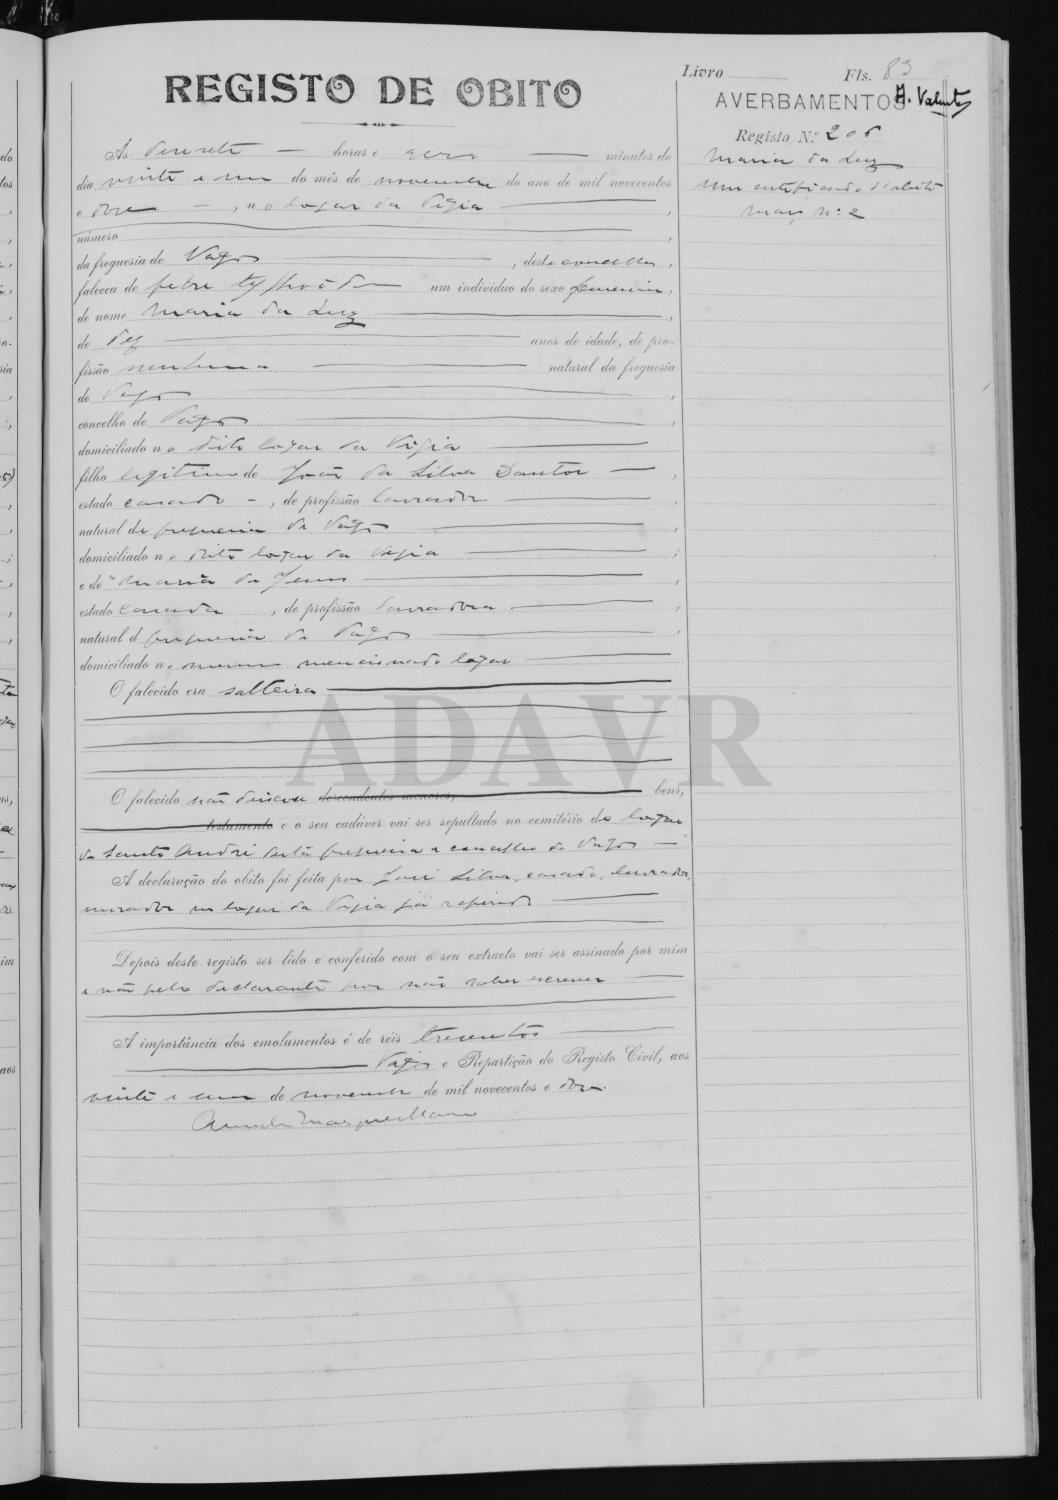 Livro Fls. 83
REGISTO DE OBITO
AVERBAMENTOS A. Valente
Registo N.º 206
Maria da Luz
Um certificado d'obito
maço nº 2
Às desesete — horas e zero — minutos do
dia vinte e um do mês de novembro do ano de mil novecentos
e doze —, no logar da Vigia —,
número —,
da freguesia de Vagos —, deste concelho,
faleceu de febre typhoide um individuo do sexo femenino,
de nome Maria da Luz —,
de dez — anos de idade, de pro-
fissão nenhuma — natural da freguesia
de Vagos —,
concelho de Vagos —,
domiciliado no dito logar da Vigia —
filho legitimo de João da Silva Santos —,
estado casado —, de profissão lavrador —,
natural da freguesia de Vagos —,
domiciliado no dito logar da Vigia —;
e de Maria de Jesus —,
estado casada, de profissão lavradora —,
natural d freguesia de Vagos —,
domiciliado no mesmo mencionado logar —
O falecido era solteira —
ADAVR
O falecido não deixou descendentes menores, — bens,
testamento e o seu cadáver vai ser sepultado no cemitério do logar
de Santo André desta freguesia e concelho de Vagos —
A declaração do obito foi feita por José Silva, casado, lavrador,
morador no logar da Vigia já referido —
Depois deste registo ser lido e conferido com o seu extracto vai ser assinado por mim
e não pelo declarante por não saber escrever —
A importância dos emolumentos é de réis tresentos —
— Vagos e Repartição do Registo Civil, aos
vinte e um de novembro de mil novecentos e doze.